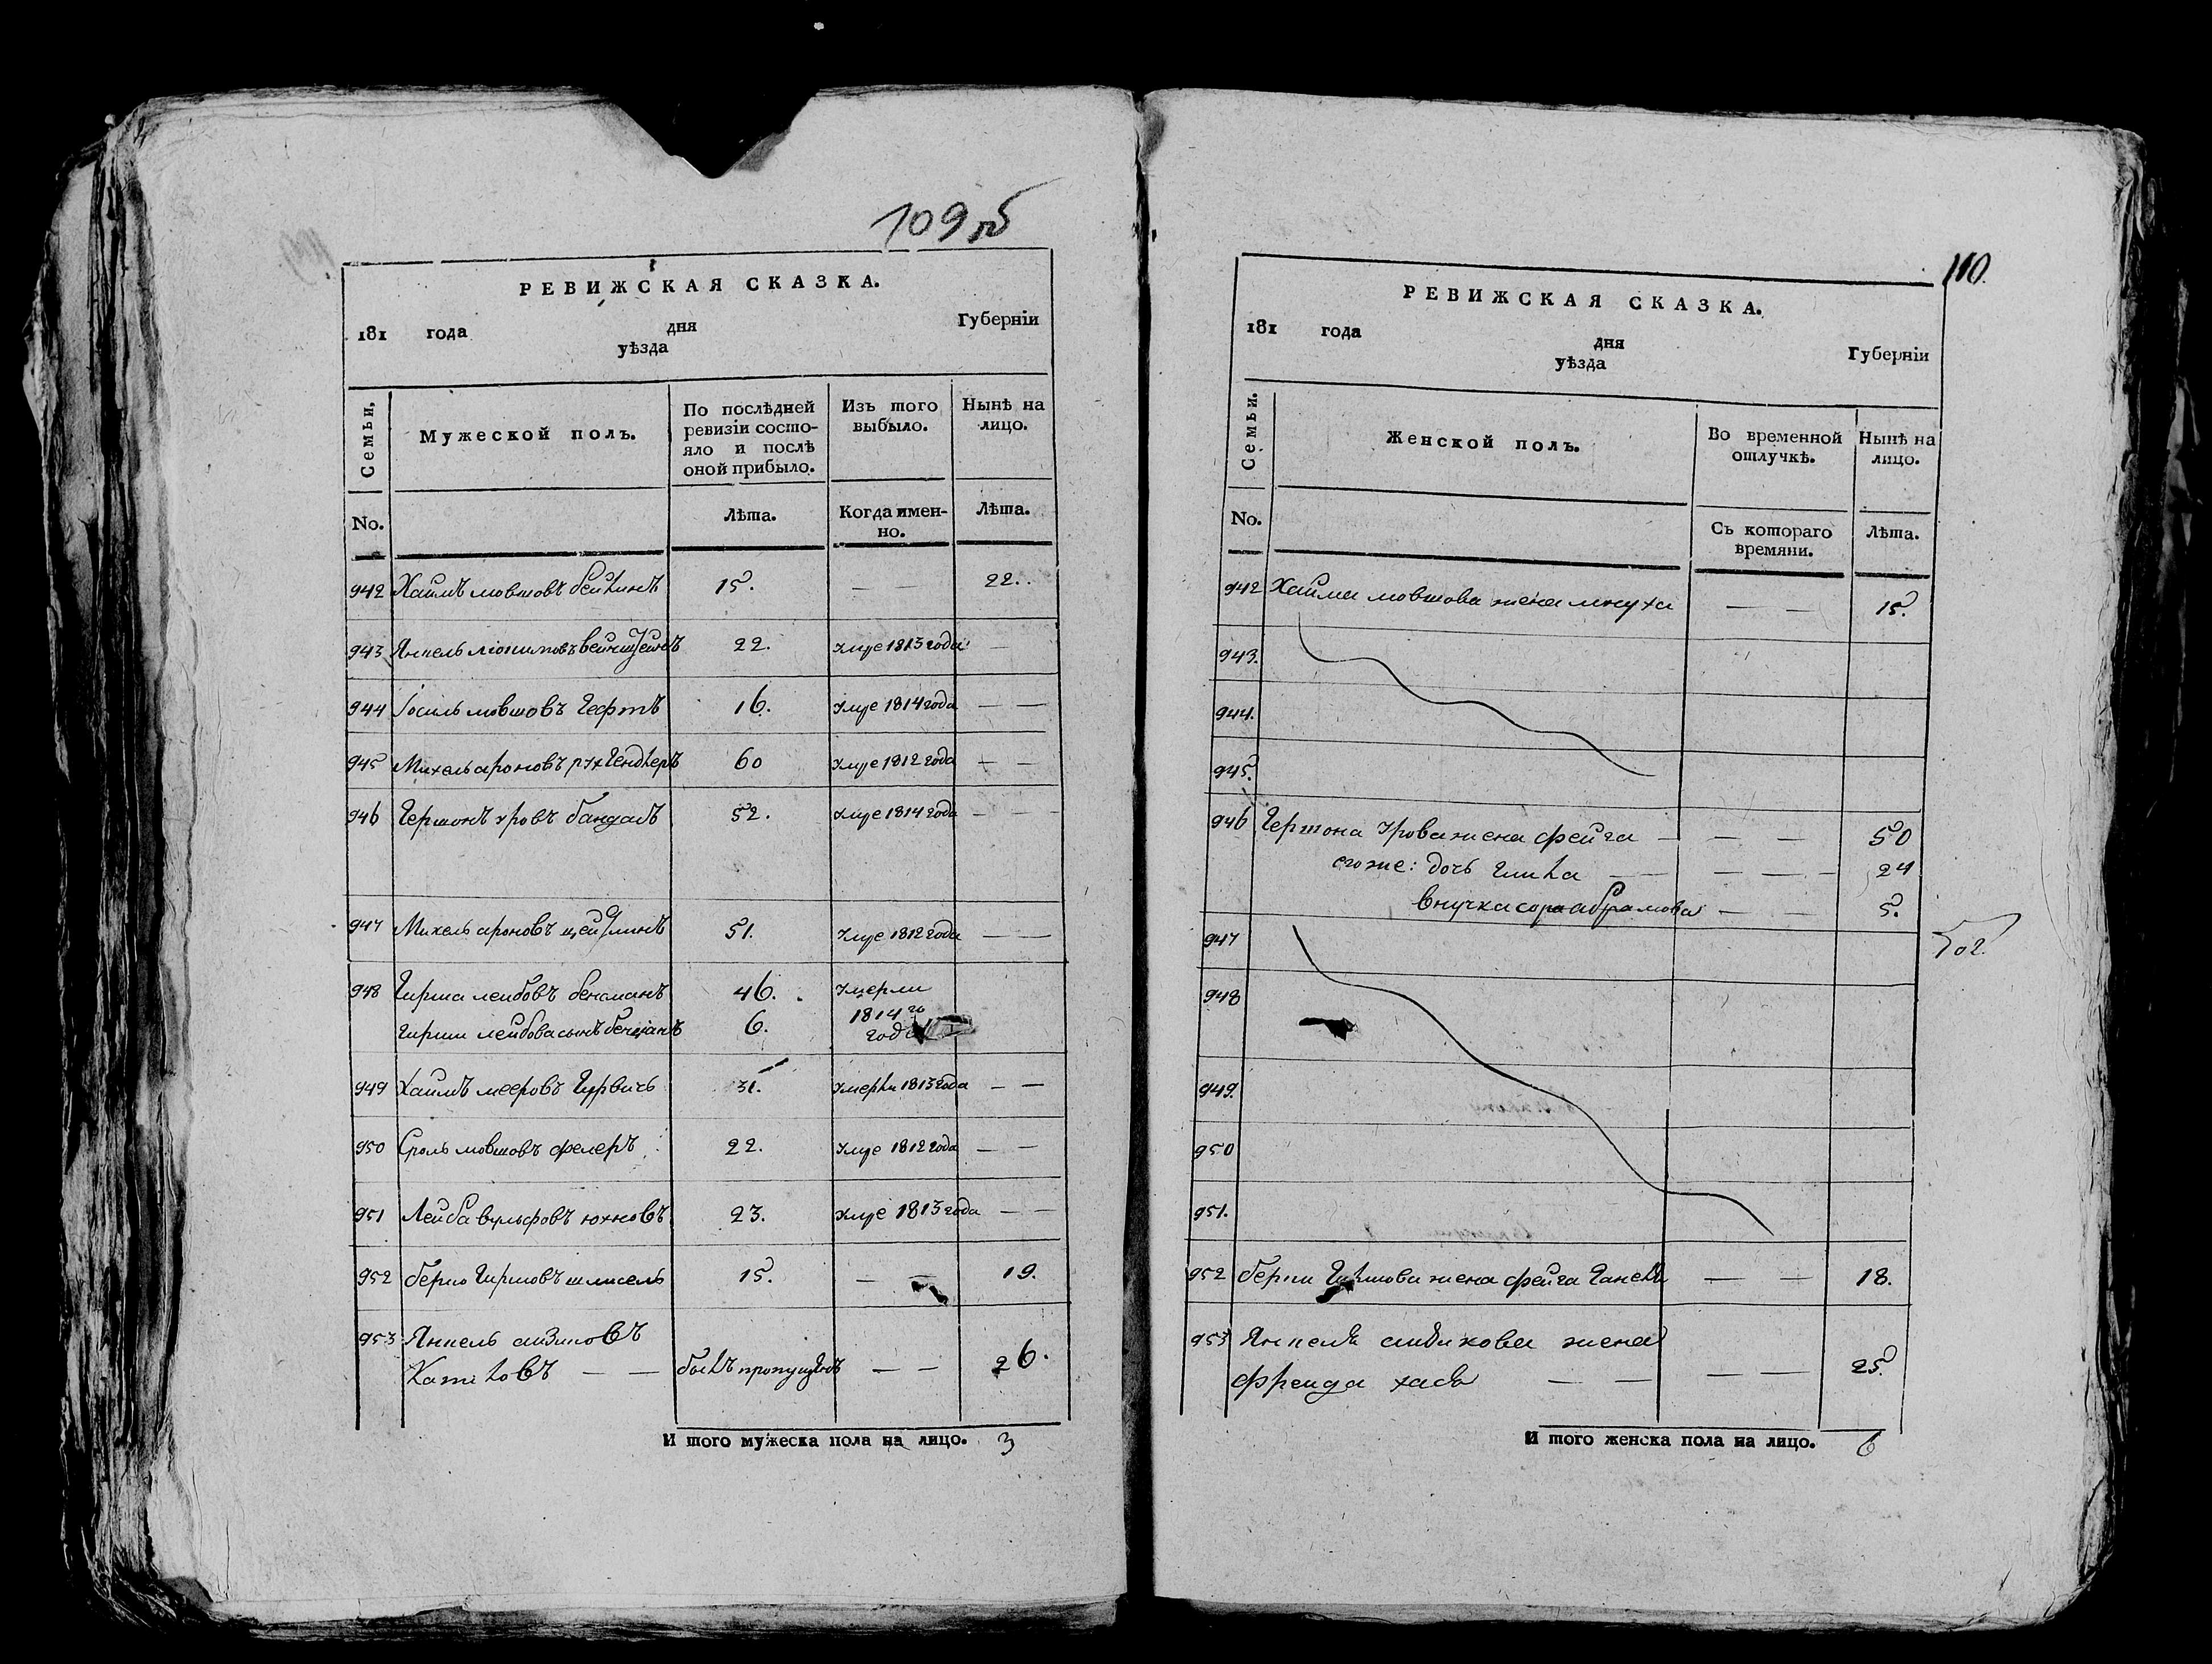 109 об
РЕВИЖСКАЯ СКАЗКА.
181 года дня Губерніи
уѣзда
Семьи, Мужеской полъ. По послѣдней ревизіи состояло и послѣ оной прибыло. Изъ того выбыло. Нынѣ на лицо.
No. Лѣта. Когда именно. Лѣта.
942 Хаимъ мовшовъ бейлинъ 15. — — 22.
943 Янкель 22. умре 1813 года —
944 Іосиль мовшовъ Гефтъ 16. умре 1814 года — —
945 Михель ароновъ 60 умре 1812 года — —
946 Гершонъ уровъ бандасъ 52. умре 1814 года — —
947 Михель ароновъ цейтлинъ 51. умре 1812 года — —
948 Гирша лейбовъ 46. умерли
Гирши лейбова сынъ 6. 1814го
года
949 Хаимъ мееровъ Гурвичь 31. 1813 года — —
950 Сроль мовшовъ фелеръ 22. умре 1812 года — —
951 Лейба вульфовъ юхновъ 23. умре 1813 года — —
952 берко Гиршовъ 15. — — 19.
953 Янкель
былъ пропущенъ — — 26.
И того мужеска пола на лицо. 3
110.
РЕВИЖСКАЯ СКАЗКА.
181 года дня Губерніи
уѣзда
Семьи. Женской полъ. Во временной отлучкѣ. Нынѣ на лицо.
No. Съ котораго времяни. Лѣта.
942 Хаима мовшова жена мнуха — — 15.
943.
944.
945.
946 Гершона урова жена фейга — — — 50
его же: дочь — — — — 24
внучка сора абрамова — — 5.
947
948
949.
950
951.
952 Гиршова жена фейга — — 18.
953 жена
фрейда хася — — — — 25.
И того женска пола на лицо. 6